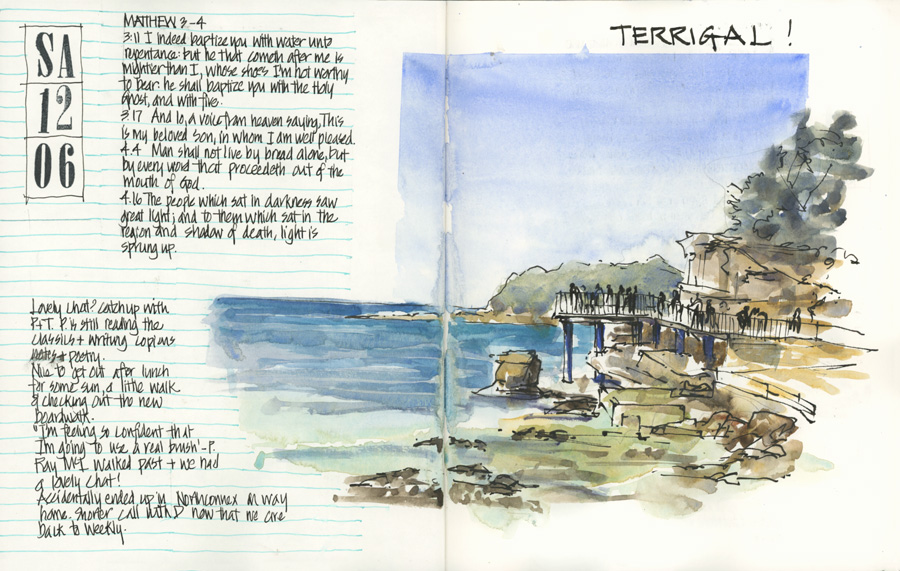 SA
12
06
MATTHEW 3-4
3:11 I indeed baptize you with water unto
repentance: but he that cometh after me is
mightier than I, whose shoes I'm not worthy
to bear: he shall baptize you with the Holy
Ghost, and with fire.
3:17 And lo, a voice from heaven saying, This
is my beloved son, in whom I am well pleased.
4.4 Man shall not live by bread alone, but
by every word that proceedeth out of the
mouth of God.
4.16 The people which sat in darkness saw
great light; and to them which sat in the
region and shadow of death, light is
sprung up.
TERRIGAL!
Lovely chat? catchup with
P+T. P. is still reading the
classics + writing copious
notes + poetry.
Nice to get out after lunch
for some sun, a little walk
& checking out the new
boardwalk.
"I'm feeling so confident that
I'm going to use a real brush"-P.
Ray McI walked past + we had
a lovely chat!
Accidentally ended up in Northconnex on way
home. Shorter call with D now that we are
back to weekly.